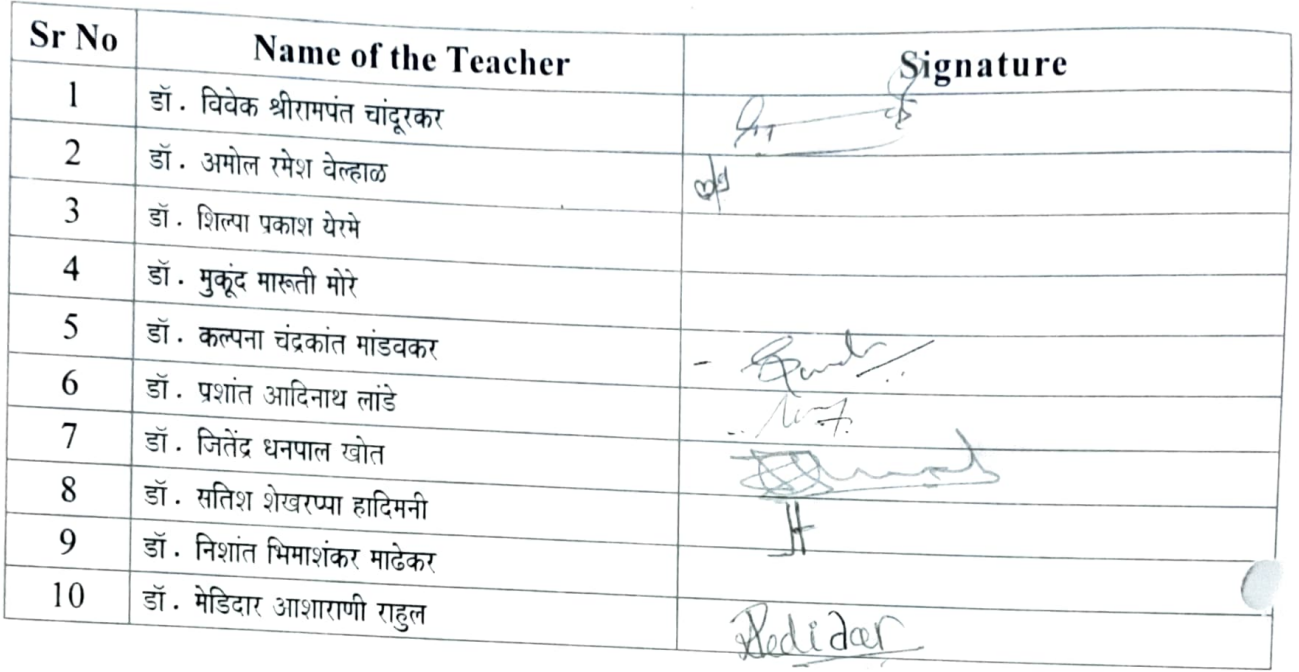 Sr No Name of the Teacher Signature
1 डॉ. विवेक श्रीरामपंत चांदूरकर
2 डॉ. अमोल रमेश वेल्हाळ
3 डॉ. शिल्पा प्रकाश येरमे
4 डॉ. मुकूंद मारूती मोरे
5 डॉ. कल्पना चंद्रकांत मांडवकर
6 डॉ. प्रशांत आदिनाथ लांडे
7 डॉ. जितेंद्र धनपाल खोत
8 डॉ. सतिश शेखरप्पा हादिमनी
9 डॉ. निशांत भिमाशंकर माढेकर
10 डॉ. मेडिदार आशाराणी राहुल